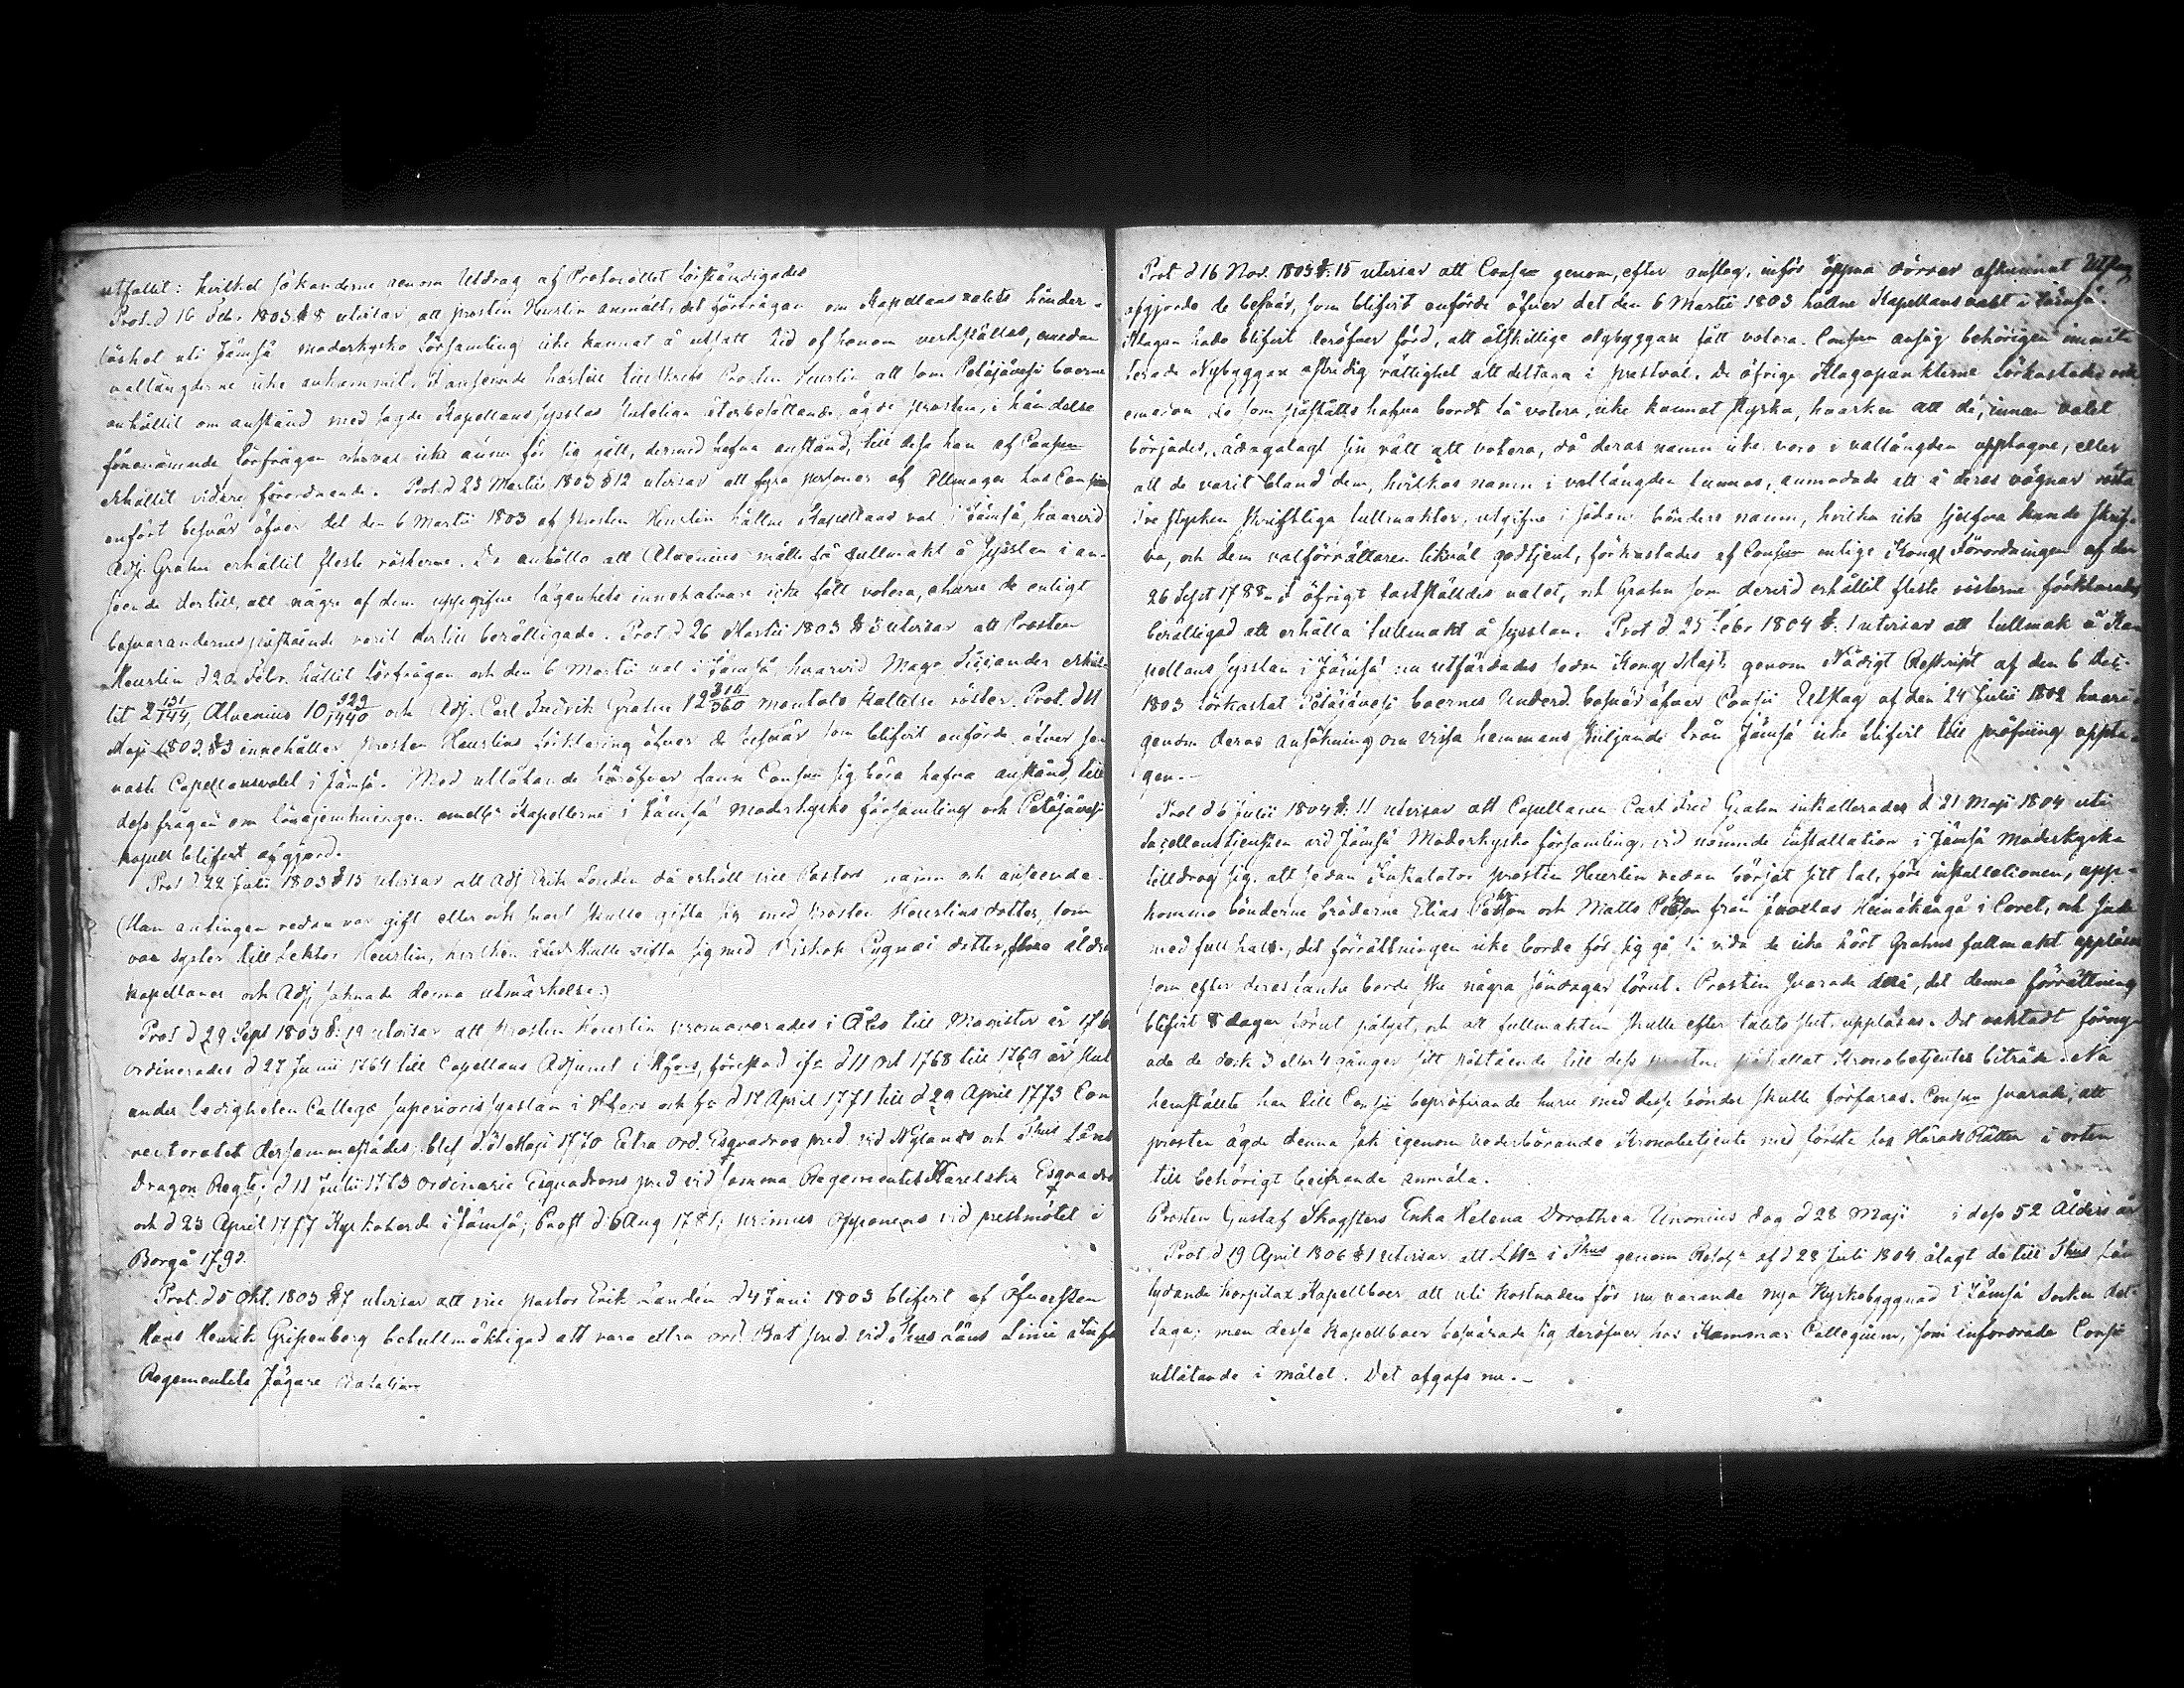 utfallit: hvilket sökanderne genom Utdrag af Protocollet förständigades
Prot. d 16 Febr. 1803 § 8 utvisar, att prosten Heurlin anmält, det förfrågan om Kapellans valets hinder-
löshet uti Jämsä moderkyrko församling icke kunnat å utsatt tid af honom verkställas, emedan
vallängderne icke ankommit. I anseende härtill tillskrefs Prosten Heurlin att som Petäjävesi boerne
anhållit om anstånd med sagde Kapellans sysslas återbesättande, ägde prosten, i händelse
förenämnde förfrågan och val icke ännu för sig gått, dermed hafva anstånd, till dess han af Consm
erhållit vidare förordnande. Prot. d 23 Martii 1803 § 12 utvisar att fyra personer af Allmogen hos Consm
anfört besvär öfver det den 6 Martii 1803 af prosten Heurlin hållne Kapellans val i Jämsä, hvarvid
Adj. Grahn erhållit fleste rösterne. De anhålla att Alvenius måtte få fullmakt å sysslan i an-
seende dertill, att några af dem uppgifne lägenhets innehafvare icke fått votera, ehuru de enligt
besvärandernes påstående varit dertill berättigade. Prot d 26 Martii 1803 § 3 utvisar att Prosten
Heurlin d 20 Febr. hållit förfrågan och den 6 Martii val i Jämsä, hvarvid Mag. erhål-
lit 2 131/144, Alvenius 10 329/1440 och Adj. Carl Fredrik Grahn 12 314/360 mantals kallelse röster. Prot. d 11
Maji 1803 § 3 innehåller prosten Heurlins förklaring öfver de besvär som blifvit anförde öfver sen
naste Capellansvalet i Jämsä. Med utlåtande häröfver fann Consm sig böra hafva anstånd, till
dess frågan om lönejemkningen emell. Kapellerne i Jämsä moderkyrko församling och Petäjävesi
kapell blifvit afgjord.
Prot d 22 Juli 1803 § 15 utvisar att Adj Erik Londén då erhöll vice Pastors namn och anseende.
(Han antingen redan var gift eller och snart skulle gifta sig med prosten Heurlins dotter, som
var syster till Lektor Heurlin, hvilken åter skulle gifta sig med Biskop Cygnæi dotter, flera äldre
kapellaner och Adj saknade denna utmärkelse.)
Prot d 29 Sept 1803 § 19 utvisar att Prosten Heurlin promoverades i Åbo till Magister år 176
ordinerades d 27 Junii 1764 till Capellans Adjunct i Hfors, förestod ifr. d 11 Oct 1768 till 1769 år slut
under ledigheten Collegæ Superioris sysslan i Hfors och fr d 11 April 1771 till d 29 April 1773 Con
rectoratet dersammastädes; blef d 8 Maji 1770 Extra ord. Esquadros pred. vid Nylands och Thus Läns
Dragon Regte; d 11 Julii 1773 ordinarie Esquadrons pred vid samma Regementet Karelska Esquadro
och d 23 April 1777 Kyrkoherde i Jämsä; Prost d 6 Aug 1781; primus opponens vid prestmötet i
Borgå 1793.
Prot. d 5 Okt. 1803 § 7 utvisar att vice pastor Erik Londén d 4 Juni 1803 blifvit af Öfversten
Hans Henrik Gripenberg befullmäktigad att vara extra ord. Bat pred. vid Thus Läns Linie
Regementets Jägare Bataljon
Prot d 16 Nov. 1803 § 15 utvisar att Consm genom, efter anslag, inför öppna dörrar afkunnat Utslag
afgjorde de besvär, som blifvit anförde öfver det den 6 Martii 1803 hållne Kapellans valet i Jämsä.
Klagan hade blifvit deröfver förd, att åtskillige Nybyggare fått votera. Consm ansåg behörigen inmäte
terade Nybyggare ostridig rättighet att deltaga i prestval. De öfrige Klagopunkterne förkastades
emedan de som påståtts hafva bordt få votera, icke kunnat styrka, hvarken att de, innan valet
börjades, ådagalagt sin rätt att votera, då deras namn icke voro i vallängden upptagne, eller
att de varit bland dem, hvilkas namn i vallängden funnos, anmodade att å deras vägnar rösta
Tre stycken skriftliga fullmakter, utgifne i sådane bönders namn, hvilka icke sjelfva kunde skrif-
va, och dem valförrättaren likväl godkjent, förkastades af Consm enligt Kongl Förordningen af den
26 Sept 1788. I öfrigt fastställdes valet, och Grahn som dervid erhållit fleste rösterne förklarades
berättigad att erhålla fullmakt å sysslan. Prot d. 25 Febr 1804 §. 1 utvisar att fullmakt å Kap
pellans sysslan i Jämsä nu utfärdades sedan Kongl Majt genom Nådigt Reskript af den 6 Dec.
1803 förkastat Petäjävesi boernes Underd. besvär öfver Consii Utslag af den 24 Julii 1802 hvari-
genom deras ansökning om vissa hemmans skiljande från Jämsä icke blifvit till pröfning uppta-
gen.
Prot d 6 Julii 1804 §. 11 utvisar att Capellanen Carl Fred Grahn installerades d 21 Maji 1804 uti
Sacellanstjensten vid Jämsä Moderkyrko församling, vid nämnde installation i Jämsä Moderkyrka
tilldrog sig, att sedan Installator prosten Heurlin redan börjat sitt tal, före installationen, upp-
kommo bönderne bröderne Elias och Matts från Heinäkangå i Coret, och sade
med full hals, det förrättningen icke borde för sig gå, så vida de icke hört Grahns fullmakt uppläsas
som efter deras tanke borde ske några söndagar förut. Prosten svarade dem, det denna förrättning
blifvit 8 dagar förut pålyst, och att fullmakten skulle efter talets slut uppläsas. Det oaktadt förny-
ade de dock 3 eller 4 gånger sitt påstående till dess prosten påkallat Kronobetjentes biträde. Nu
hemställte han till Consii bepröfvande huru med desse bönder skulle förfaras. Consm svarade, att
prosten ägde denna sak igenom vederbörande Kronobetjente med första hos Härads Rätten i orten
till behörigt beifrande anmäla.
Prosten Gustaf Skogsters Enka Helena Dorothea Unonius dog d 28 Maji i dess 52 Ålders år
Prot d 19 April 1806 § 1 utvisar att LHn i Thus genom Resoln af d 28 Juli 1804 ålagt de till Thus Län
lydande Korpilax Kapellboer, att uti kostnaden för nu varande nya Kyrkobyggnad i Jämsä Socken del-
taga; men desse Kapellboer besvärade sig deröfver hos Kammar Collegium, som infordrade Consii
utlåtande i målet. Det afgafs nu.